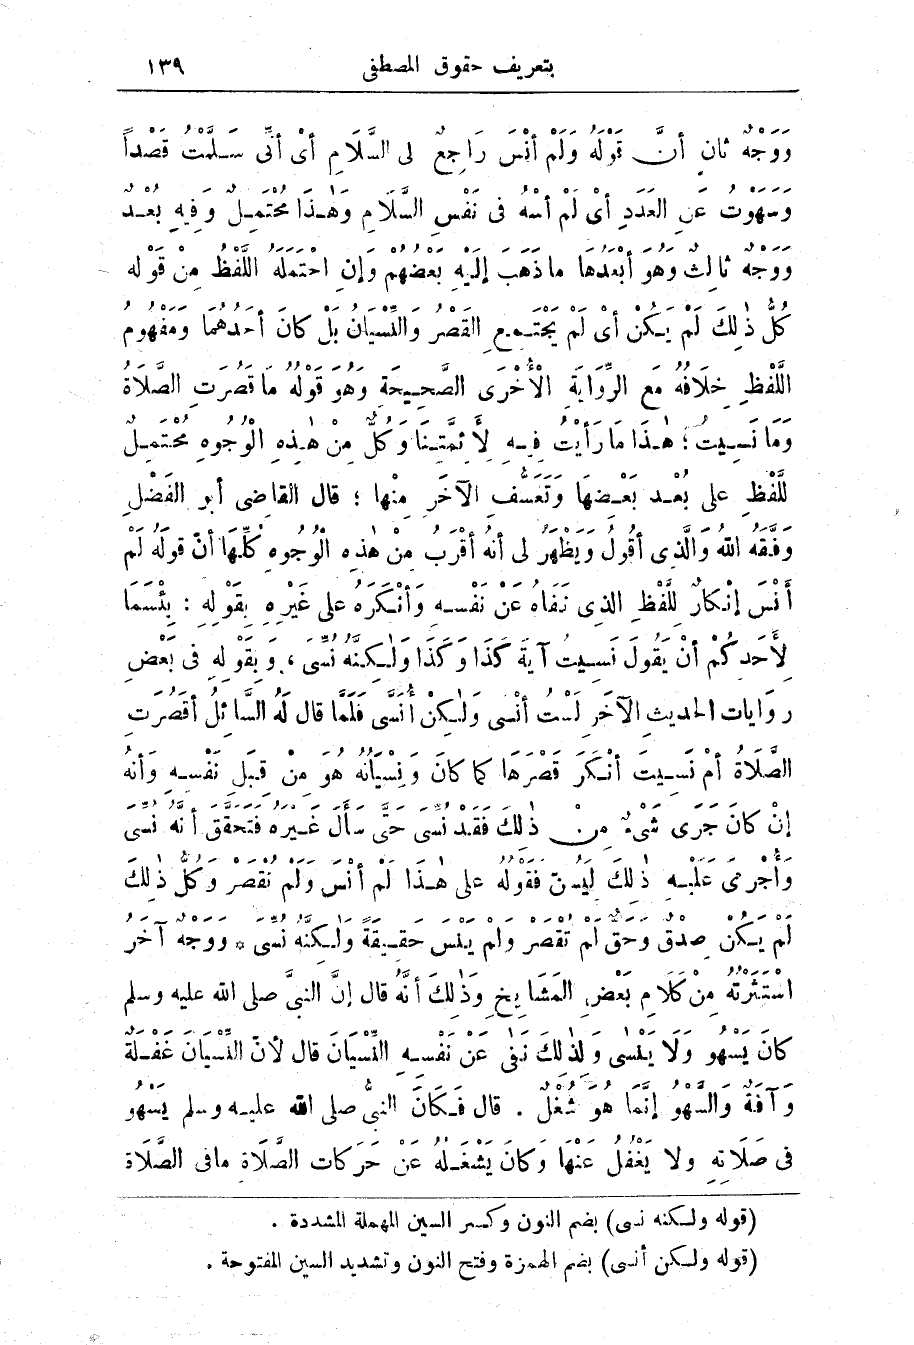 بتعريف حقوق المصطفى ١٣٩
وَوَجْهٌ ثَانٍ أَنَّ قَوْلَهُ وَلَمْ أَنْسَ رَاجِعٌ لِى السَّلَامِ أَىْ أَنِّى سَلَّمْتُ قَصْداً
وَسَهَوْتُ عَنِ العَدَدِ أَىْ لَمْ أَسْهُ فى نَفْسِ السَّلَامِ وَهٰذَا مُحْتَمَلٌ وَفِيهِ بُعْدٌ
وَوَجْهٌ ثَالِثٌ وَهُوَ أَبْعَدُهَا ماذَهَبَ إِلَيْهِ بَعْضُهُمْ وَإِنِ احْتَمَلَهُ اللَّفْظُ مِنْ قَوْلِهِ
كُلُّ ذٰلِكَ لَمْ يَكُنْ أَىْ لَمْ يَجْتَمِعِ القَصْرُ وَالنِّسْيَانُ بَلْ كَانَ أَحَدُهُمَا وَمَفْهُومُ
اللَّفْظِ خِلَافُهُ مَعَ الرِّوَايَةِ الْأُخْرَى الصَّحِيحَةِ وَهُوَ قَوْلُهُ مَا قَصُرَتِ الصَّلَاةُ
وَمَا نَسِيتُ ؛ هٰذَا مَا رَأَيْتُ فِيهِ لِأَئِمَّتِنَا وَكُلٌّ مِنْ هٰذِهِ الْوُجُوهِ مُحْتَمِلٌ
لِلَّفْظِ على بُعْدِ بَعْضِهَا وَتَعَسُّفِ الآخَرِ مِنْها ؛ قال القاضى أبو الفَضْلِ
وَفَّقَهُ اللهُ وَالَّذِى أَقُولُ وَيَظْهَرُ لِى أَنهُ أَقْرَبُ مِنْ هٰذِهِ الْوُجُوهِ كُلِّهَا أَنّ قَوْلَهُ لَمْ
أَنْسَ إِنْكَارٌ لِلَّفْظِ الذى نَفَاهُ عَنْ نَفْسِهِ وَأَنْكَرَهُ على غَيْرِهِ بِقَوْلِهِ : بِئْسَمَا
لِأَحَدِكُمْ أَنْ يَقُولَ نَسِيتُ آيَةَ كَذَا وَكَذَا وَلٰكِنَّهُ نُسِّىَ ، وَبِقَوْلِهِ فى بَعْضِ
رِوَايات الحديثِ الآخَرِ لَسْتُ أَنْسى وَلٰكِنْ أُنَسَّى فَلَمَّا قال لَهُ السَّائِلُ أَقَصُرَتِ
الصَّلَاةُ أَمْ نَسِيتَ أَنْكَرَ قَصْرَهَا كما كانَ وَنِسْيَانَهُ هُوَ مِنْ قِبَلِ نَفْسِهِ وَأَنهُ
إِنْ كَانَ جَرَى شَىْءٌ مِنْ ذٰلِكَ فَقَدْ نُسِّىَ حَتَّى سَأَلَ غَيْرَهُ فَتَحَقَّقَ أَنَّهُ نُسِّىَ
وَأُجْرِىَ عَلَيْهِ ذٰلِكَ لِيَسُنّ فَقَوْلُهُ على هٰذَا لَمْ أَنْسَ وَلَمْ تُقْصَرْ وَكُلُّ ذٰلِكَ
لَمْ يَكُنْ صِدْقٌ وَحَقٌّ لَمْ تُقْصَرْ وَلَمْ يَنْسَ حَقِيقَةً وَلٰكِنَّهُ نُسِّىَ * وَوَجْهٌ آخَرُ
اسْتَثَرْتُهُ مِنْ كَلَامِ بَعْضِ المَشَايِخِ وَذٰلِكَ أَنَّهُ قال إِنَّ النبىَّ صلى الله عليه وسلم
كانَ يَسْهُو وَلَا يَنْسٰى وَلِذٰلِكَ نَفٰى عَنْ نَفْسِهِ النِّسْيَانَ قال لأَنّ النِّسْيَانَ غَفْلَةٌ
وَآفَةٌ وَالسَّهْوُ إِنَّمَا هُوَ شُغْلٌ . قال فَكَانَ النبىُّ صلى الله عليه وسلم يَسْهُو
فى صَلَاتِهِ ولا يَغْفُلُ عَنْهَا وَكانَ يَشْغَلُهُ عَنْ حَرَكاتِ الصَّلَاةِ مافى الصَّلَاةِ
(قوله ولكنه نسى) بضم النون وكسر السين المهملة المشددة .
(قوله ولكن أنسى) بضم الهمزة وفتح النون وتشديد السين المفتوحة .